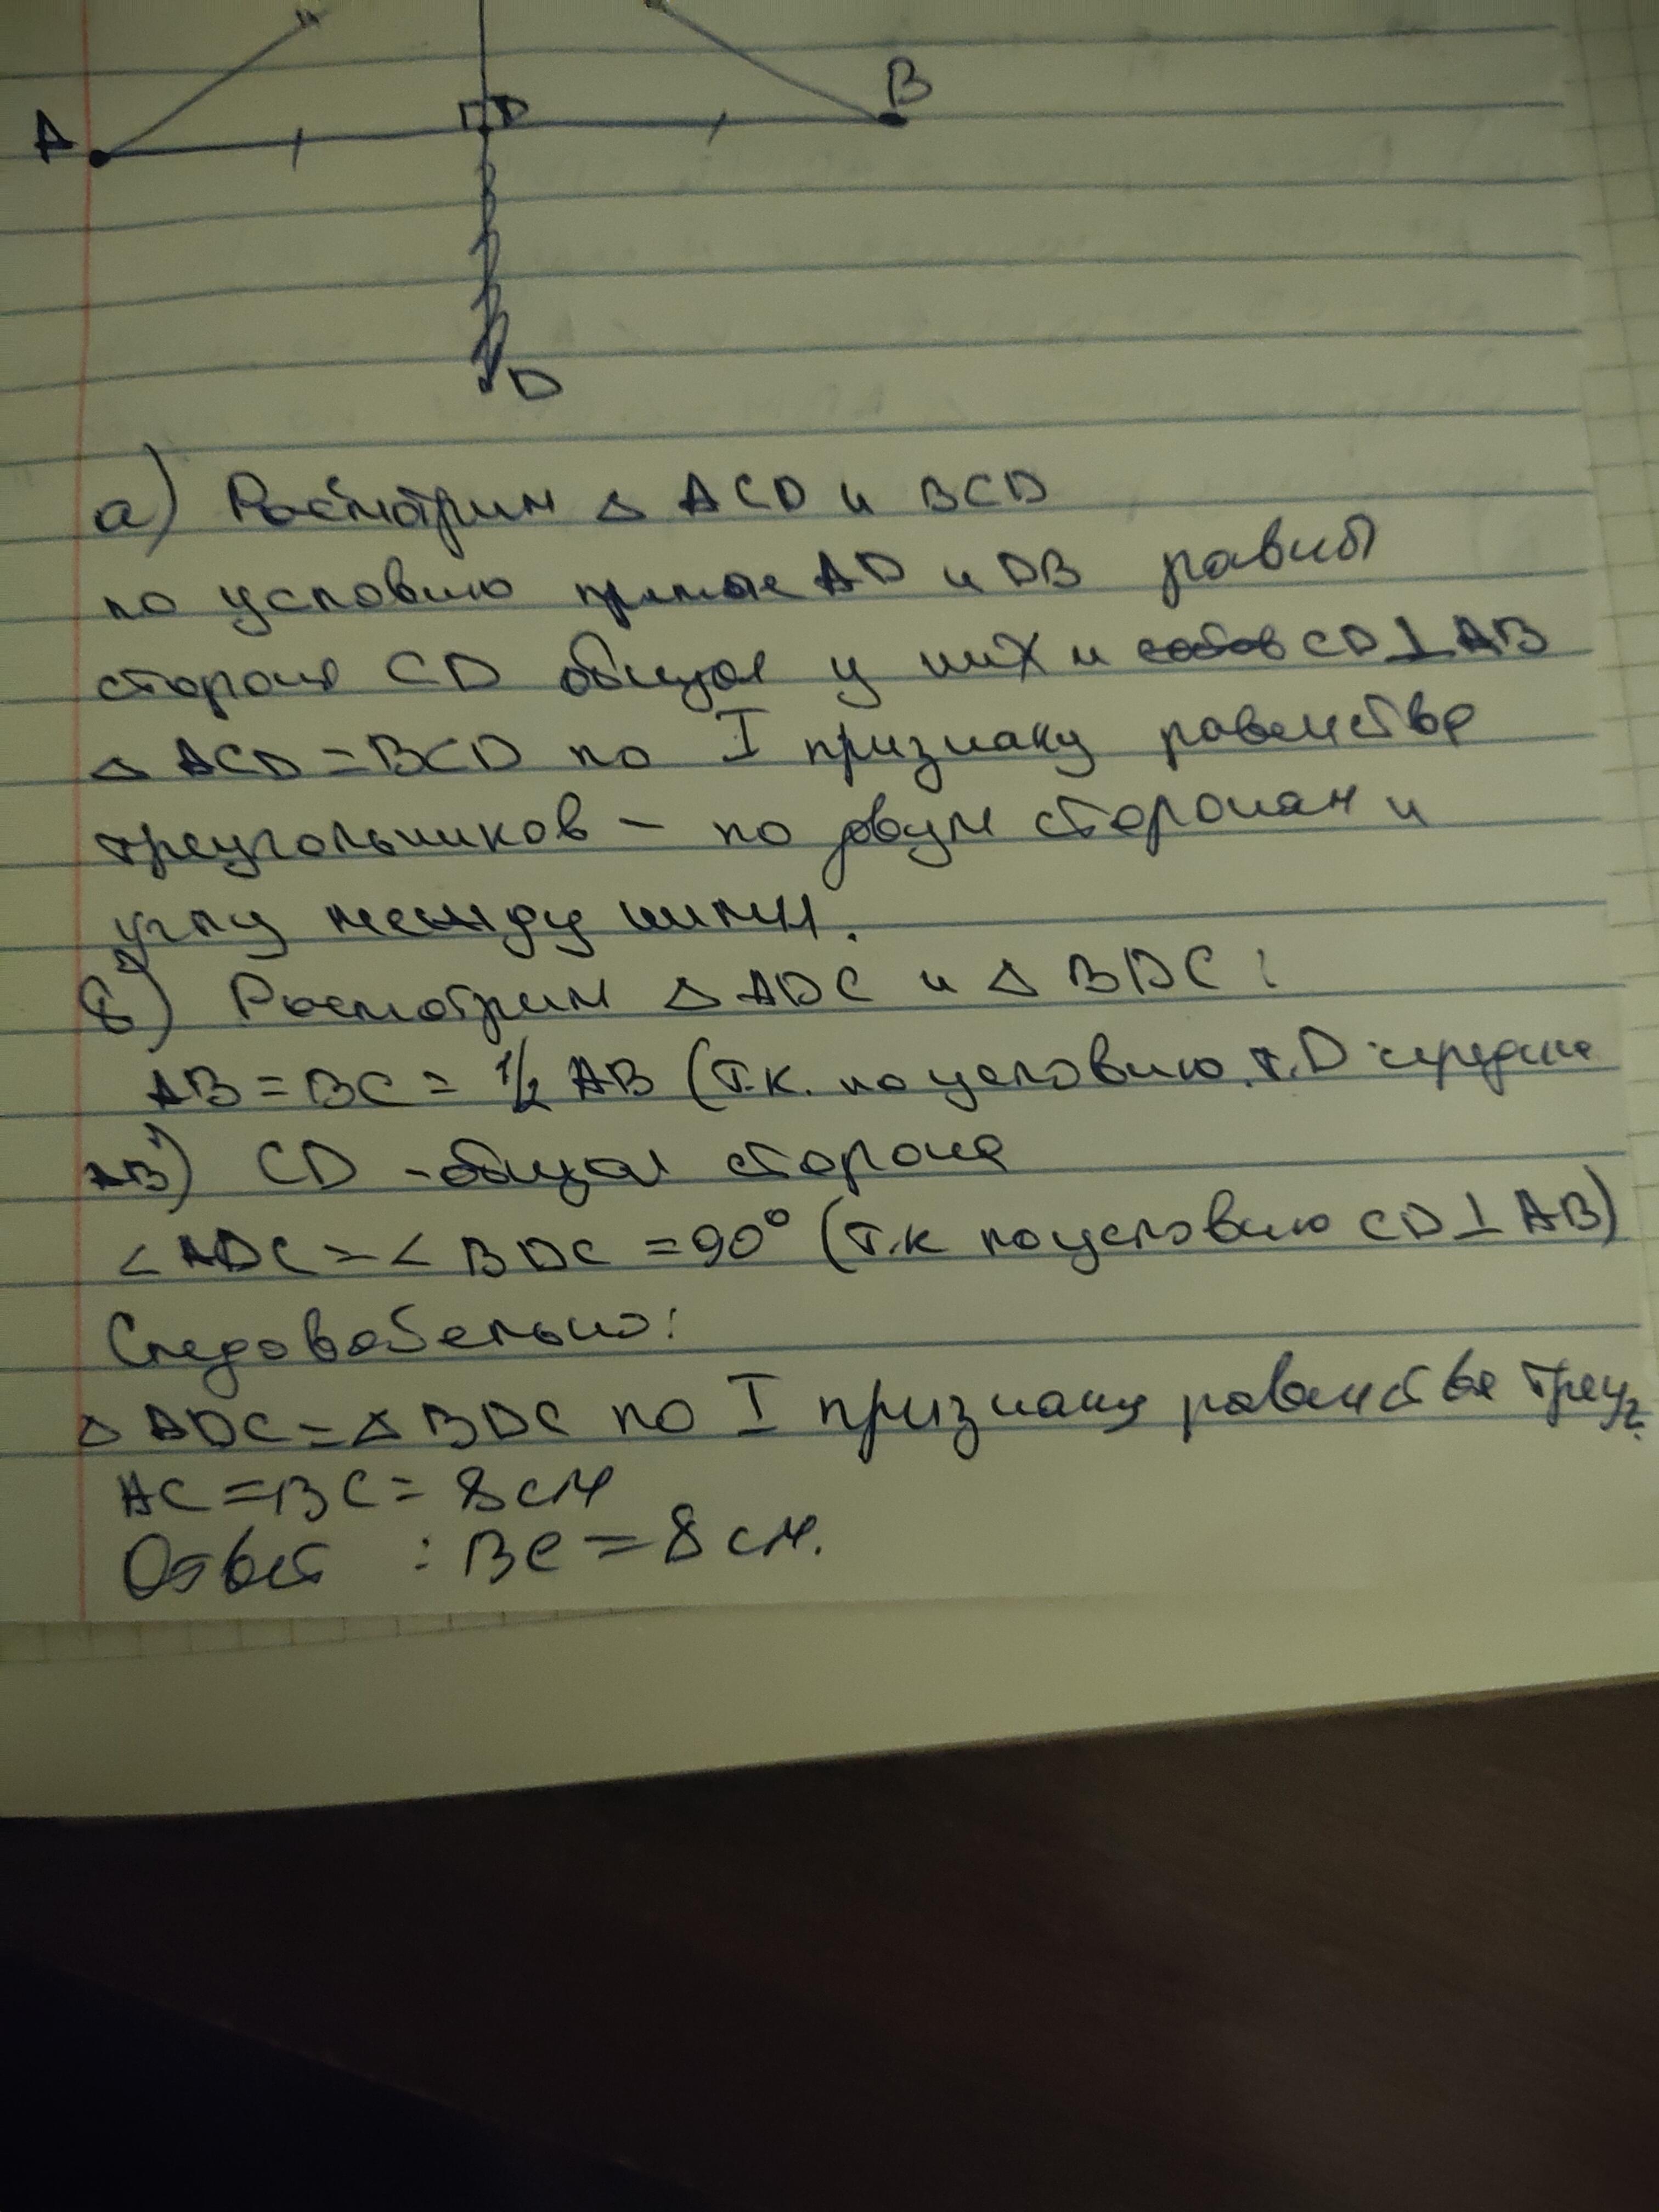 A
D
B
D
а) Расмотрим △ ACD и BCD
по условию прямые AD и DB равны
сторона CD общая у них и CD⊥AB
△ ACD = BCD по I признаку равенства
треугольников – по двум сторонам и
углу между ними.
б) Расмотрим △ ADC и △ BDC:
AB = BC = 1/2 AB (т.к. по условию т. D середина
AB) CD - общая сторона
∠ ADC = ∠ BDC = 90° (т.к по условию CD⊥AB)
Следовательно:
△ ADC = △ BDC по I признаку равенства треуг.
AC = BC = 8 см
Ответ : BC = 8 см.